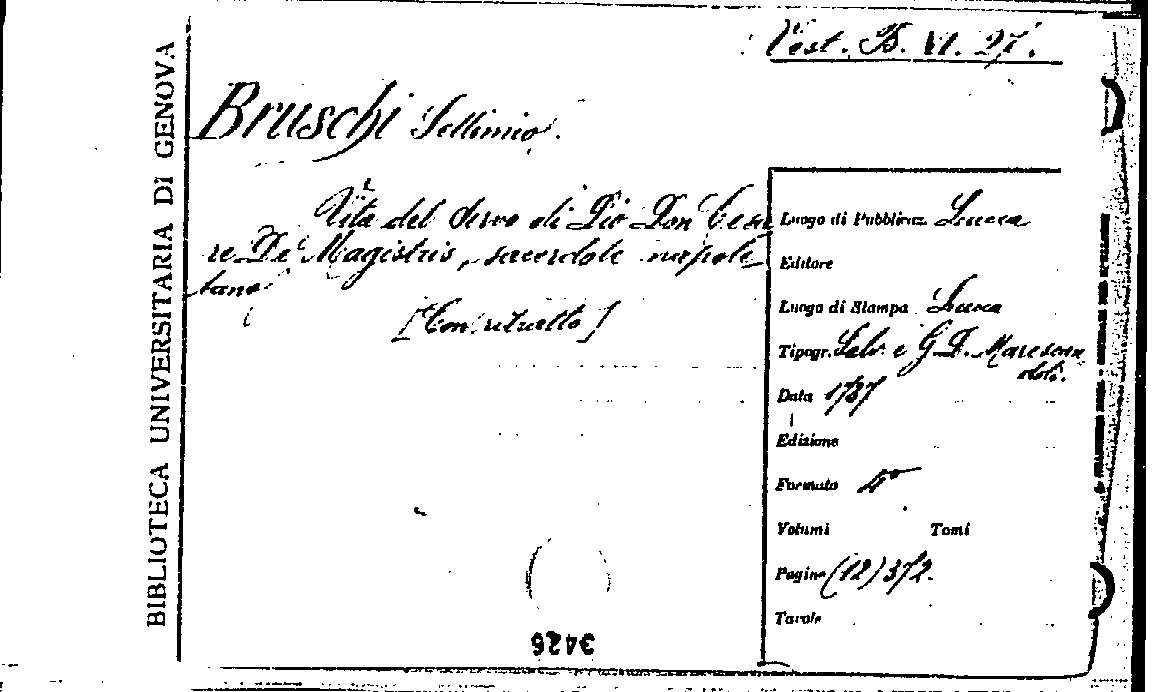 BIBLIOTECA UNIVERSITARIA DI GENOVA
Vest. B. VI. 27.
Bruschi Settimio.
Vita del Servo di Dio Don Cesa
re De Magistris, sacerdote napole
tano
[Con ritratto]
Luogo di Pubblicaz. Lucca
Editore
Luogo di Stampa Lucca
Tipogr. Salv. e G. D. Marescan
doli.
Data 1737
Edizione
Formato 4°
Volumi Tomi
Pagine (12) 372.
Tavole
3426